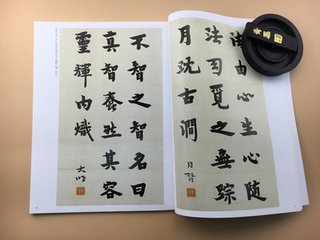 法由心生心随
法司覓之無踪
月沈古澗
不智之智名曰
真智蠢然其容
靈輝内熾